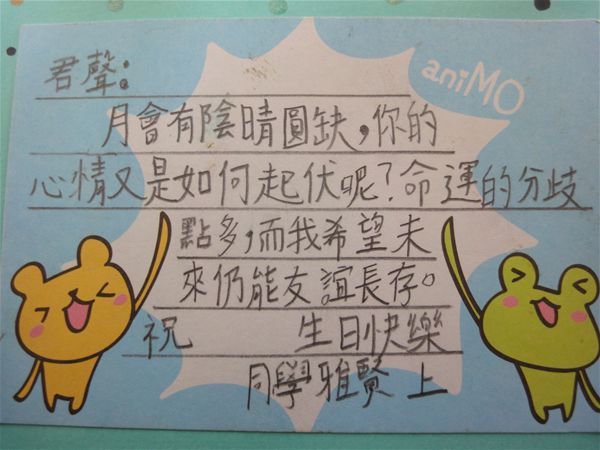 君聲：
aniMO
月會有陰晴圓缺，你的
心情又是如何起伏呢？命運的分歧
點多，而我希望未
來仍能友誼長存。
祝　生日快樂
同學雅賢 上